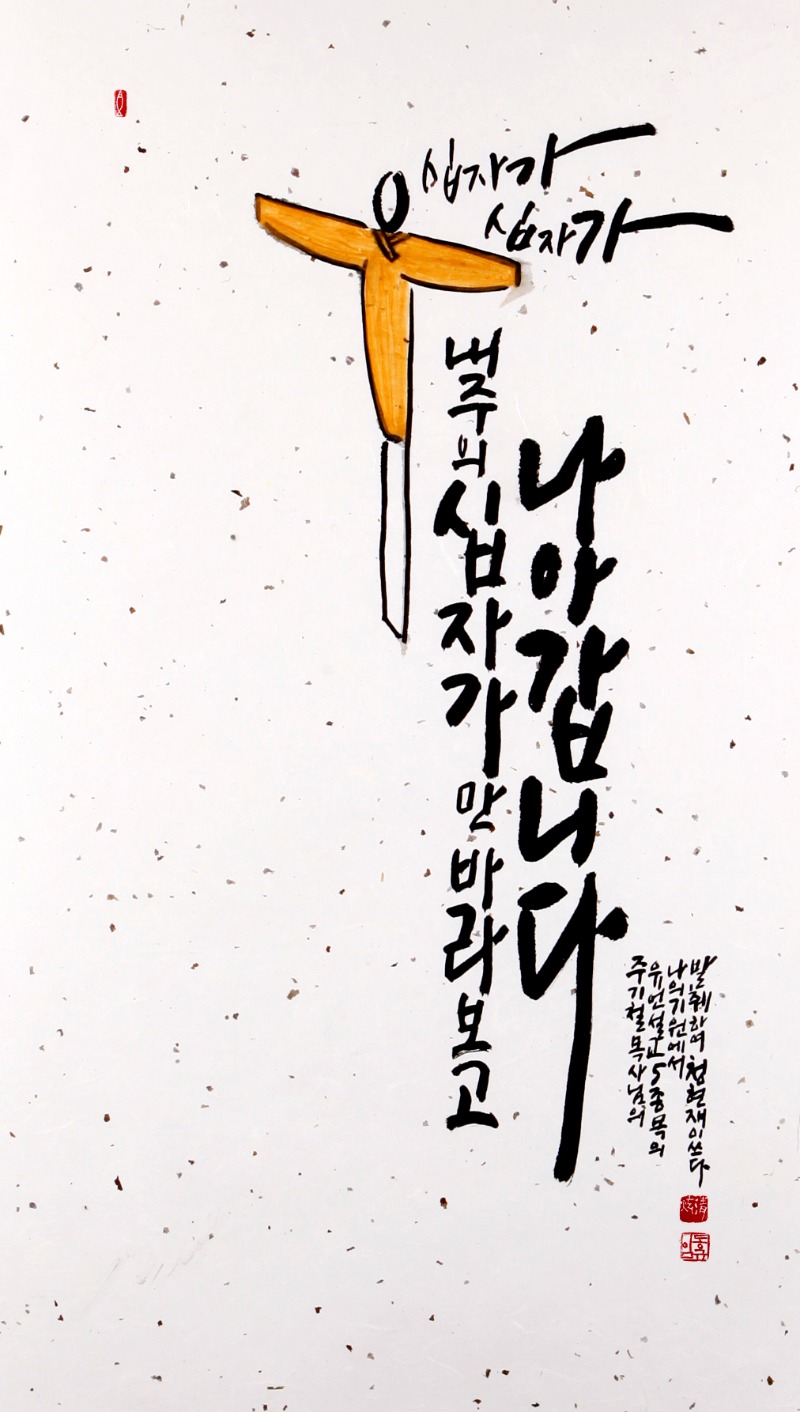 십자가
십자가
내주의십자가만바라보고
나아갑니다
주기철목사님의
유언설교5종목의
나의기원에서
발췌하여 청현재이쓰다